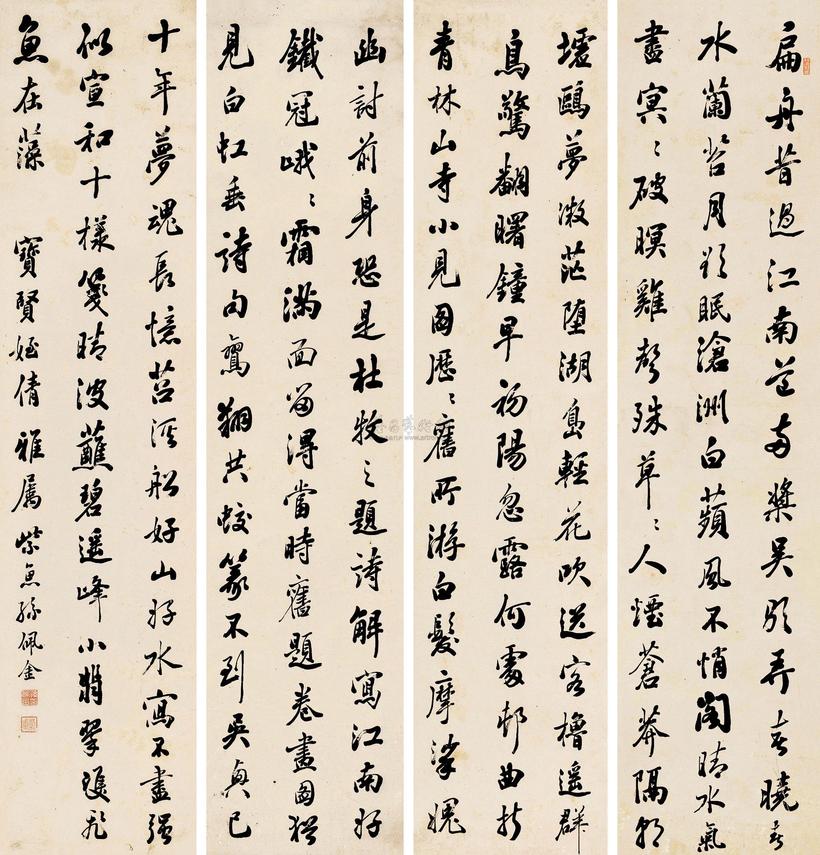 扁舟昔過江南道兩槳吳弄春曉春
水蘭苕月欲眠滄洲白蘋風不悄閣晴水氣
晝冥〻破暝雞聲殊草〻人煙蒼莽隔郊
墟鷗夢微茫墮湖島輕花吹送客櫓遙群
鳥驚翻曙鐘早初陽忽露何處邨曲折
青林山寺小見圖歷〻舊所游白髮摩挲愧
幽討前身恐是杜牧之題詩解寫江南好
鐵冠峨〻霜滿面留得當時舊題卷畫圖猶
見白虹垂詩句鸞翔共蛟篆不到吳興已
十年夢魂長憶苕溪船好山好水寫不盡強
似宣和十樣箋晴波蘸碧遙峰小翡翠雙飛
魚在藻 寶賢姪倩雅屬 紫魚孫佩金